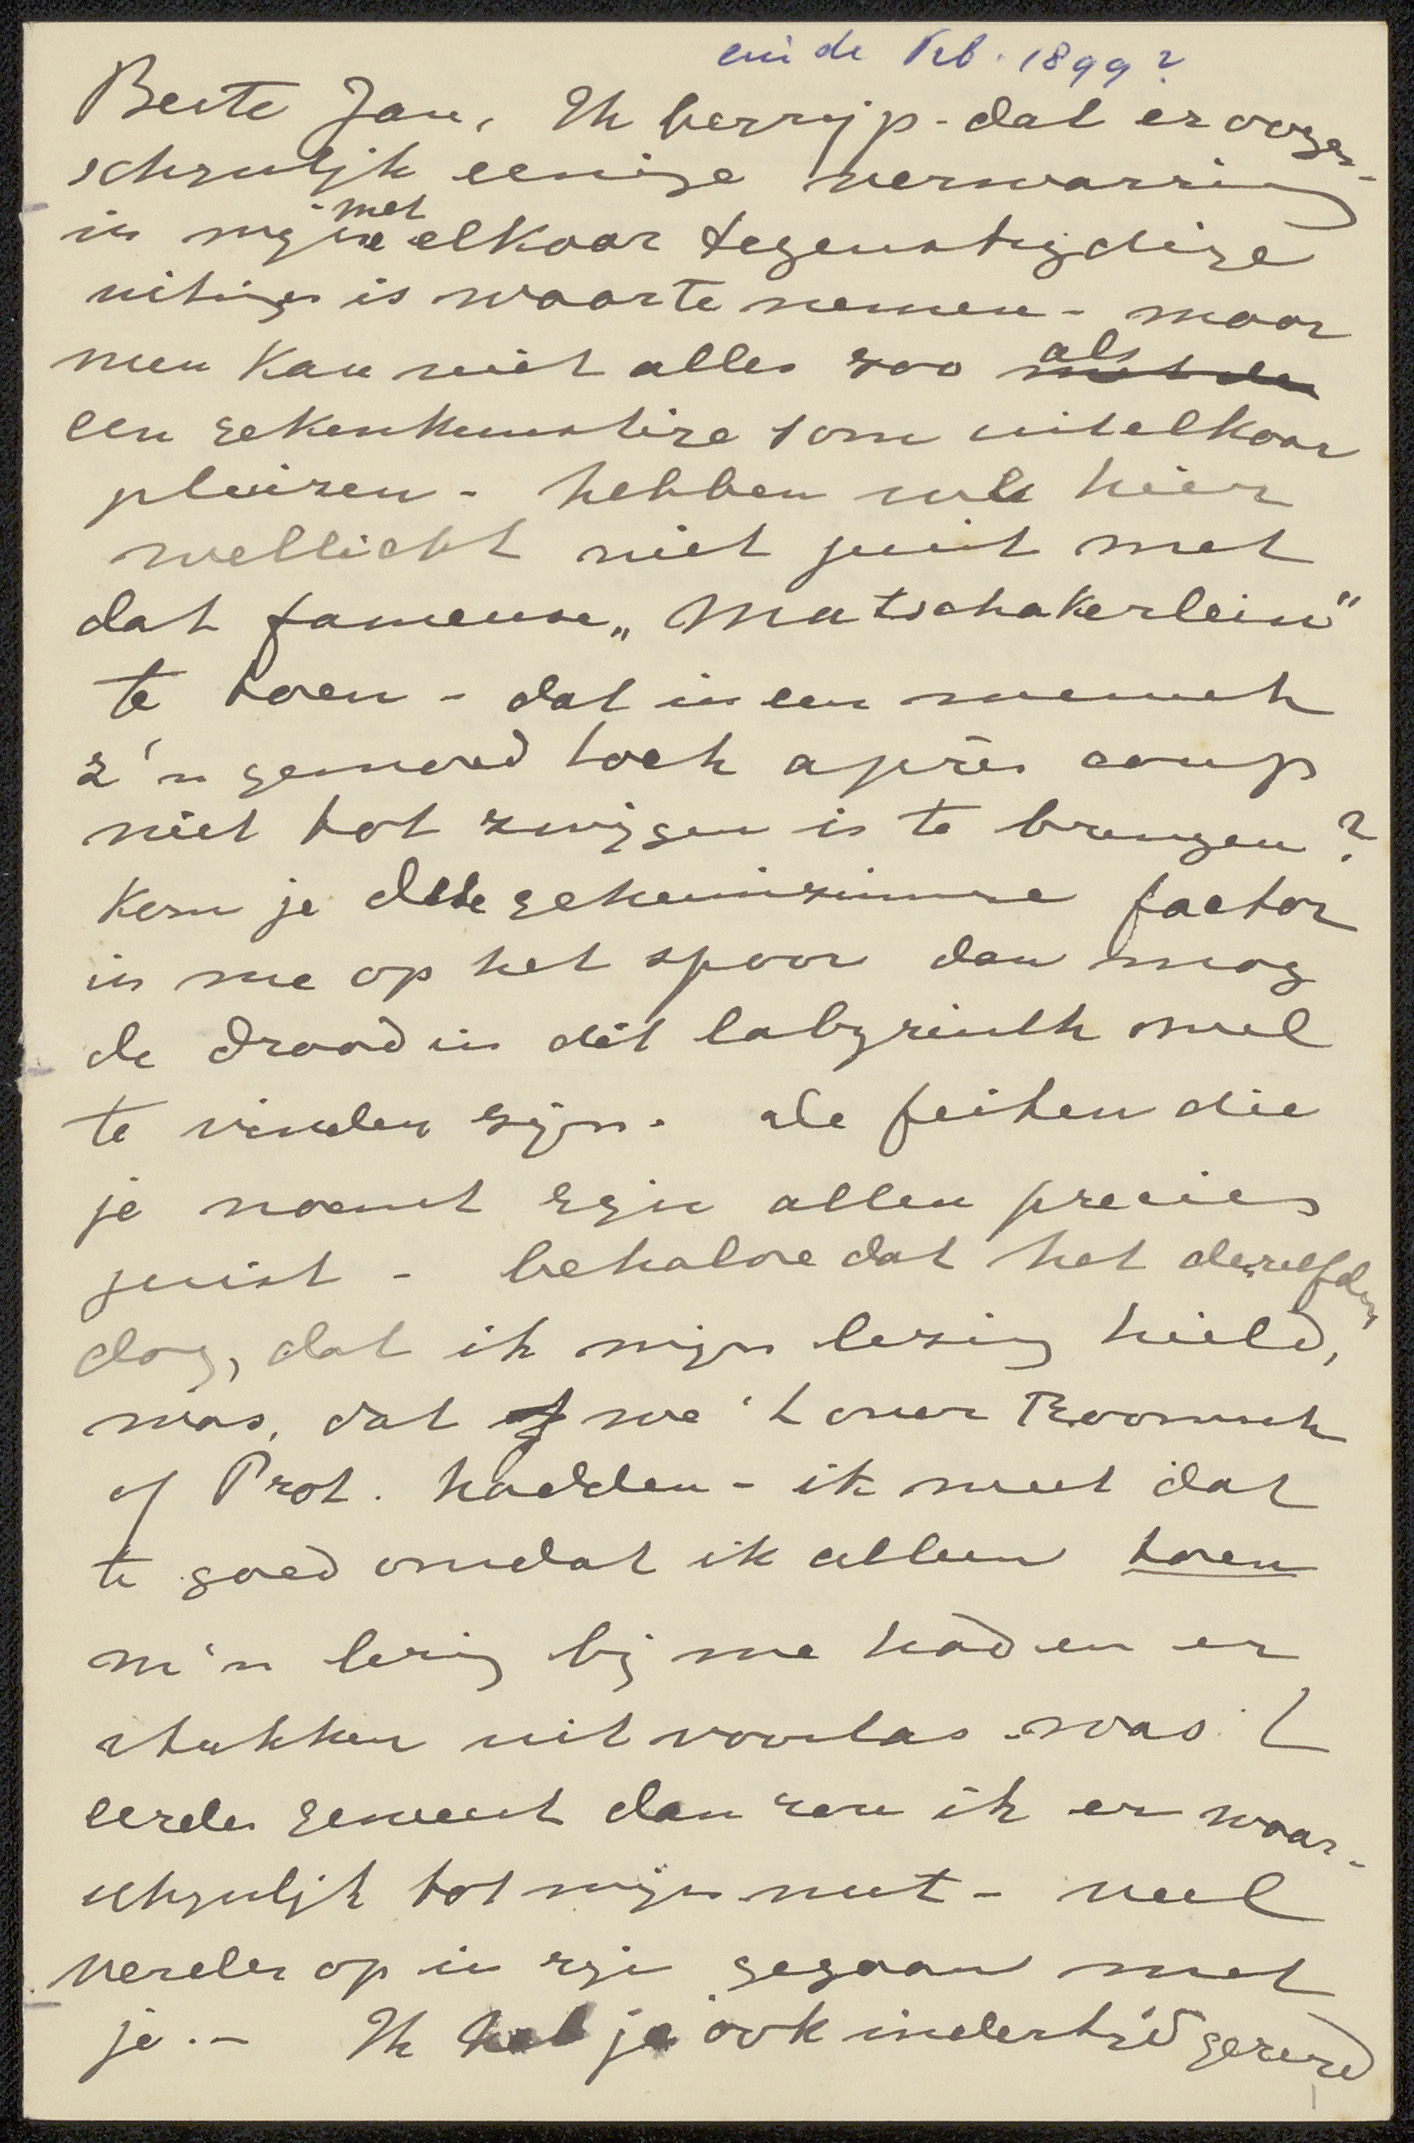 einde Feb. 1899?
Beste Jan, Ik begrijp dat er oogen-
schijnlijk eenige verwarring
in mijne met elkaar tegenstrijdige
uitings is waar te nemen - maar
men kan niet alles zoo als
een rekenkunstige som uitelkaar
pluizen - hebben we hier
wellicht niet juist met
dat fameuse „Matschakerlein"
te doen - dat in een mensch
z'n gemoed toch après coup
niet tot zwijgen is te brengen?
Kom je deze geheimzinnige factor
in me op het spoor dan mag
de draad in dit labyrinth wel
te vinden zijn. de feiten die
je noemt zijn allen precies
juist - behalve dat het denzelfden
dag, dat ik mijn lezing hield,
was, dat we 't over Roomsch
of Prot. hadden - ik weet dat
te goed omdat ik alleen toen
m'n lezing bij me had en er
stukken uit voorlas. was 't
eerder geweest dan zou ik er waar-
schijnlijk tot mijn nut - veel
verder op in zijn gegaan met
je. - Ik heb je ook indertijd gezegd